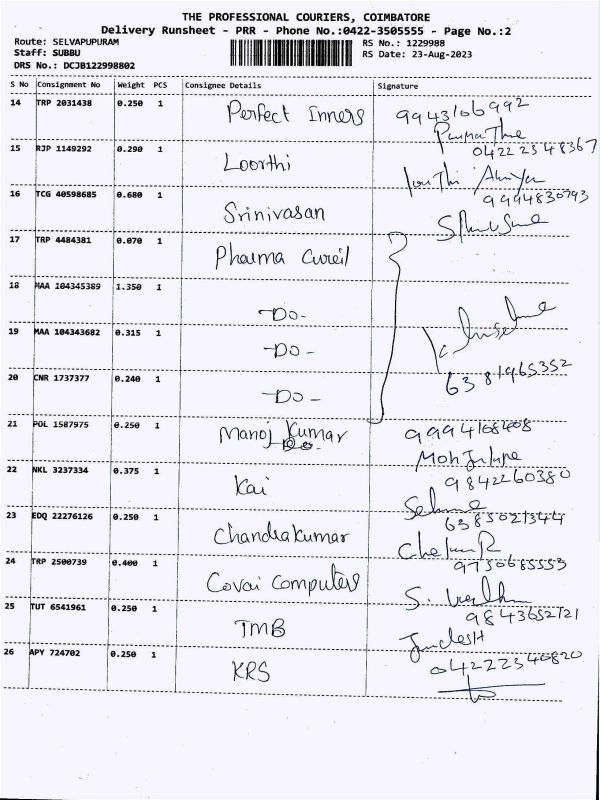 THE PROFESSIONAL COURIERS, COIMBATORE
Delivery Runsheet - PRR - Phone No.:0422-3505555 - Page No.:2
Route: SELVAPUPURAM RS No.: 1229988
Staff: SUBBU RS Date: 23-Aug-2023
DRS No.: DCJB122998802
S No Consignment No Weight PCS Consignee Details Signature
14 TRP 2031438 0.250 1 Perfect Inners 9943106992
15 RJP 1149292 0.290 1 Loorthi 04222348367
16 TCG 40598685 0.680 1 Srinivasan 9994830793
17 TRP 4484381 0.070 1 Pharma Cureil
18 MAA 104345389 1.350 1 -Do-
19 MAA 104343682 0.315 1 -Do-
20 CNR 1737377 0.240 1 -Do- 6381965352
21 POL 1587975 0.250 1 Manoj Kumar 9994168408
22 NKL 3237334 0.375 1 Kai 9842260380
23 EDQ 22276126 0.250 1 Chandrakumar 6385021344
24 TRP 2500739 0.400 1 Covai Computers 9750685553
25 TUT 6541961 0.250 1 TMB 9843652121
26 APY 724702 0.250 1 KRS 04222340820